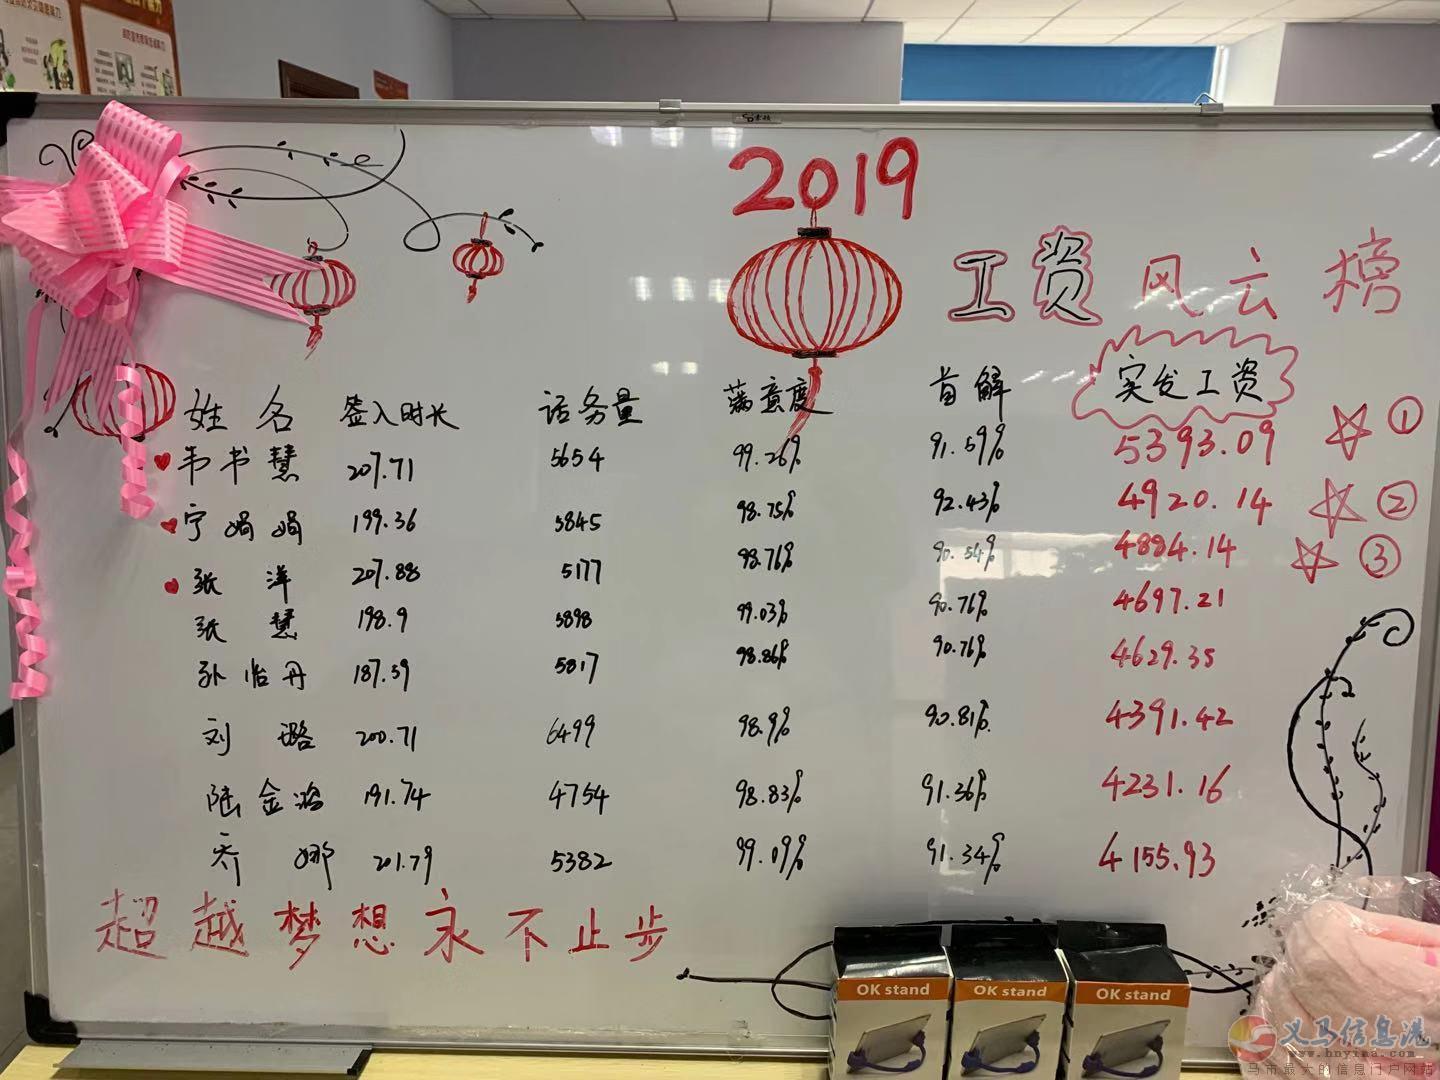 2019
工资风云榜
姓名 签入时长 话务量 满意度 首解 实发工资
韦书慧 207.71 5654 99.26% 91.59% 5393.09 ①
宁娟娟 199.36 5845 98.75% 92.43% 4920.14 ②
张洋 207.88 5177 98.76% 90.54% 4884.14 ③
张慧 198.9 5898 99.03% 90.76% 4697.21
孙怡丹 187.59 5817 98.86% 90.76% 4629.35
刘璐 200.71 6499 98.9% 90.81% 4391.42
陆金 191.74 4754 98.83% 91.36% 4231.16
乔娜 201.79 5382 99.09% 91.34% 4155.93
超越梦想永不止步
OK stand
OK stand
OK stand
义马信息港
www.hnyima.com
马市最大的信息门户网站